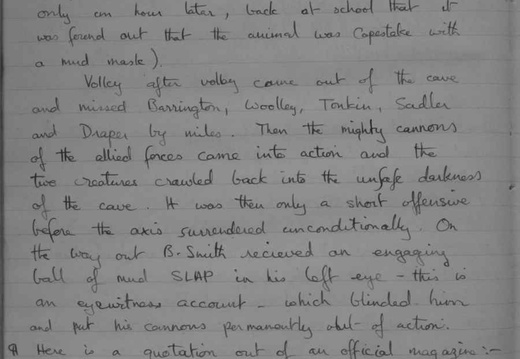 only an hour later, back at school that it
was found out that the animal was Capestake with
a mud mask).
Volley after volley came out of the cave
and missed Barrington, Woolley, Tonkin, Sadler
and Draper by miles. Then the mighty cannons
of the allied forces came into action and the
two creatures crawled back into the unsafe darkness
of the cave. It was then only a short offensive
before the axis surrendered unconditionally. On
the way out B. Smith recieved an engaging
ball of mud SLAP in his left eye - this is
an eyewitness account - which blinded him
and put his cannons permanently out of action.
Here is a quotation out of an official magazine :-